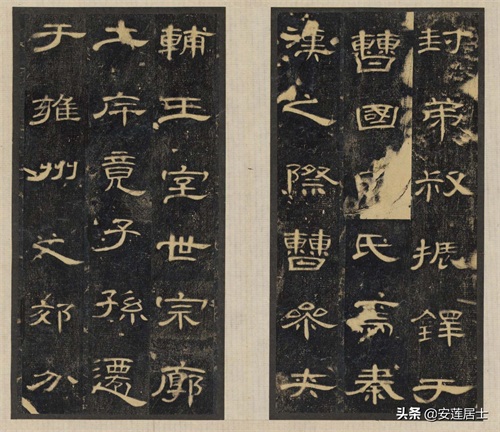 封弟叔振鐸于
曹國因氏焉秦
漢之際曹參夾
輔王室世宗廓
土斥竟子孫遷
于雍州之郊分
头条 @安莲居士